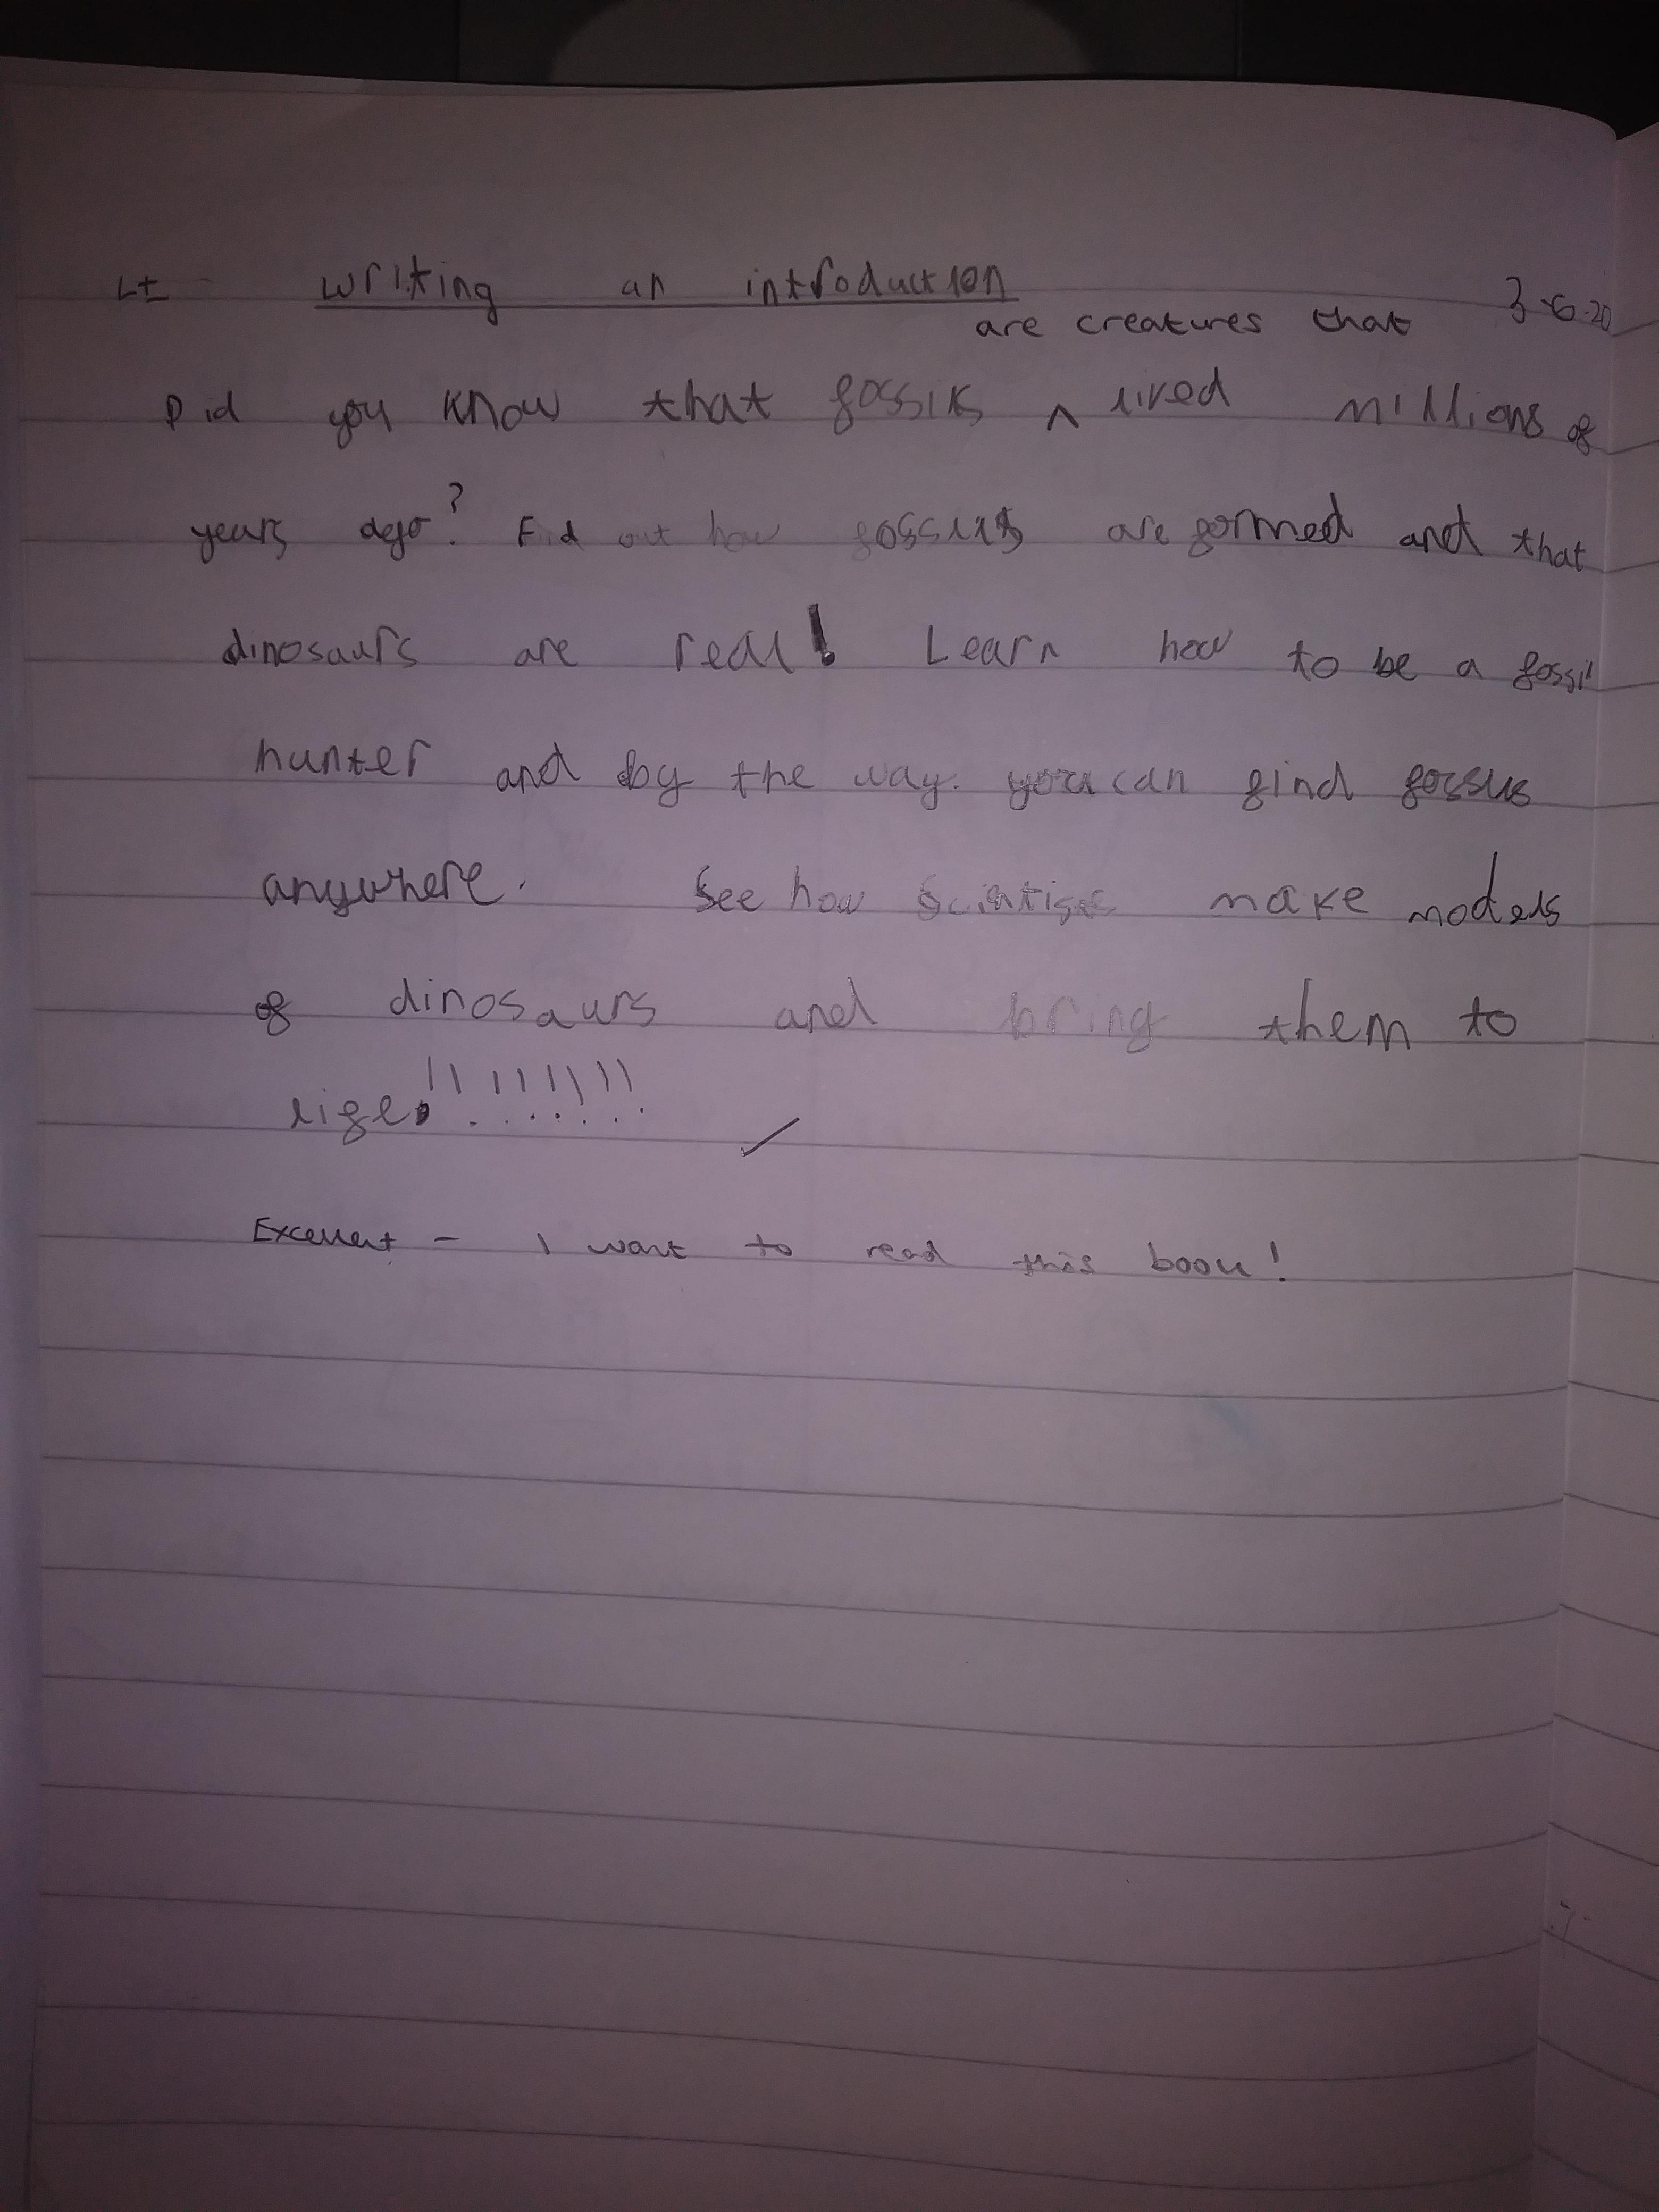 Lt writing an introduction 3-6-20
are creatures that
Did you know that fossils ^ lived millions of
years ago? Fid out how fossils are formed and that
dinosaurs are real! Learn how to be a fossil
hunter and by the way. you can find fossils
anywhere. See how make models
of dinosaurs and bring them to
life!!!!!!!!!
Excellent - I want to read this book!